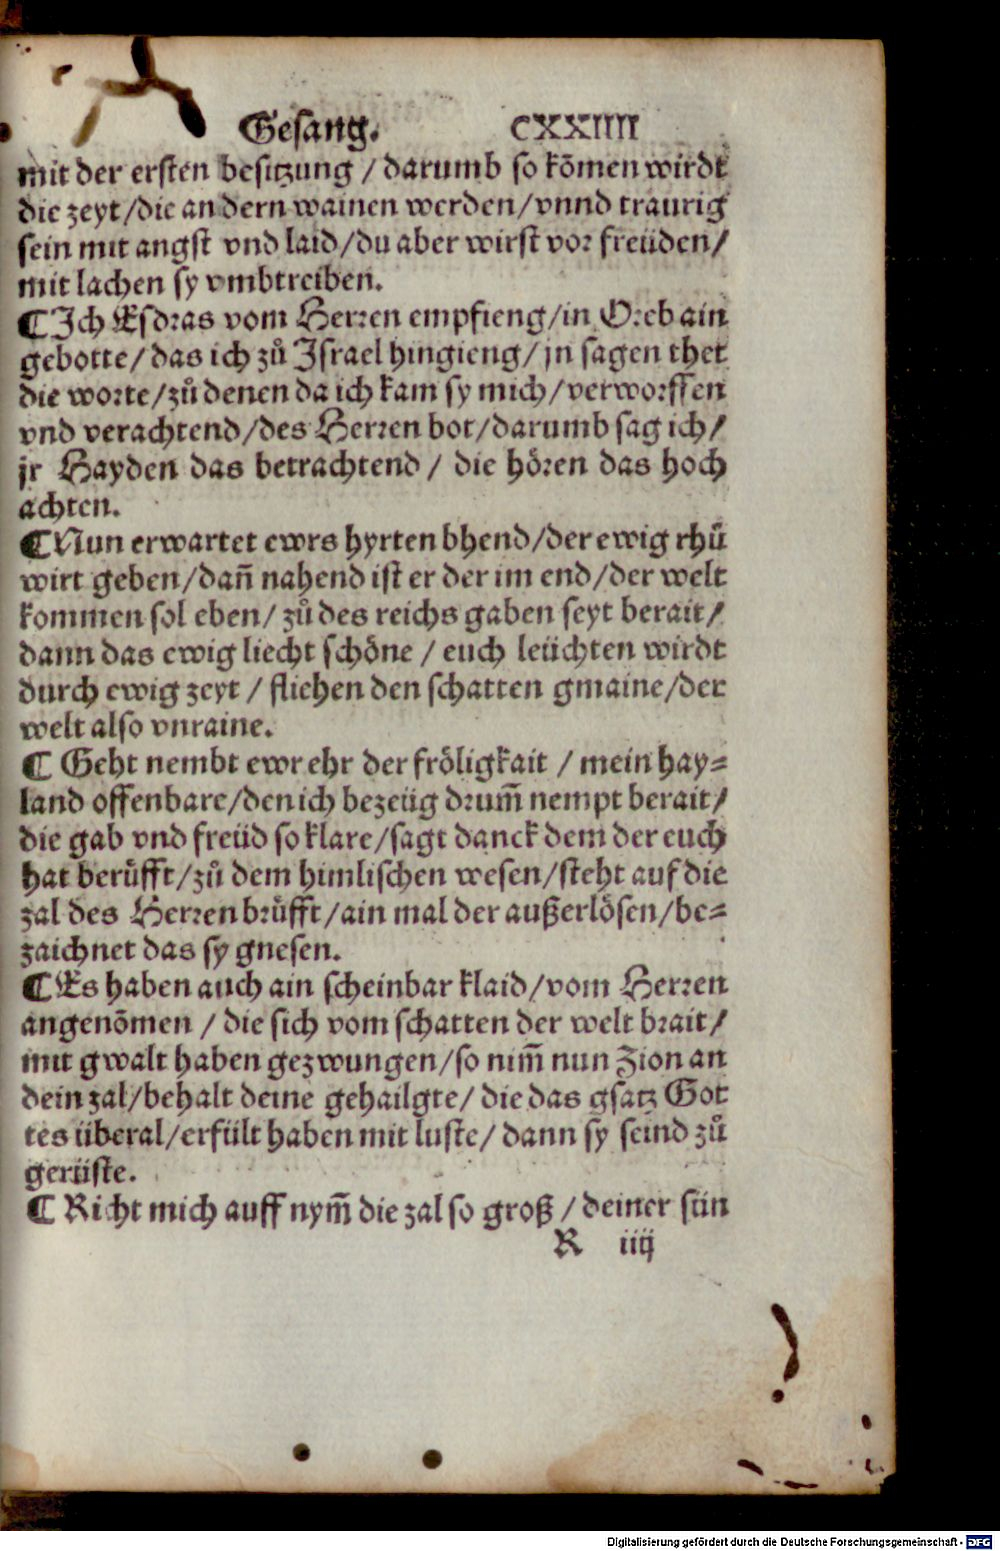 Gesang. CXXIIII
mit der ersten besitzung / darumb so kõmen wirdt
die zeyt/die andern wainen werden/vnnd traurig
sein mit angst vnd laid/du aber wirst vor freüden/
mit lachen sy vmbtreiben.
¶ Ich Esdras vom Herren empfieng/in Oreb ain
gebotte/das ich zů Israel hingieng/jn sagen thet
die worte/zů denen da ich kam sy mich/verworffen
vnd verachtend/des Herren bot/darumb sag ich/
jr Hayden das betrachtend / die hören das hoch
achten.
¶ Nun erwartet ewrs hyrten bhend/der ewig rhů
wirt geben/dañ nahend ist er der im end/der welt
kommen sol eben/ zů des reichs gaben seyt berait/
dann das ewig liecht schöne / euch leüchten wirdt
durch ewig zeyt / fliehen den schatten gmaine/der
welt also vnraine.
¶ Geht nembt ewr ehr der fröligkait / mein hay-
land offenbare/den ich bezeüg drum̃ nempt berait/
die gab vnd freüd so klare/sagt danck dem der euch
hat berůfft/zů dem himlischen wesen/steht auf die
zal des Herren brůfft/ain mal der außerlösen/be-
zaichnet das sy gnesen.
¶ Es haben auch ain scheinbar klaid/vom Herren
angenõmen / die sich vom schatten der welt brait/
mit gwalt haben gezwungen/so nim̃ nun Zion an
dein zal/behalt deine gehailgte/ die das gsatz Got
tes überal/erfült haben mit luste/ dann sy seind zů
gerüste.
¶ Richt mich auff nym̃ die zal so groß / deiner sün
R iiij
Digitalisierung gefördert durch die Deutsche Forschungsgemeinschaft - DFG